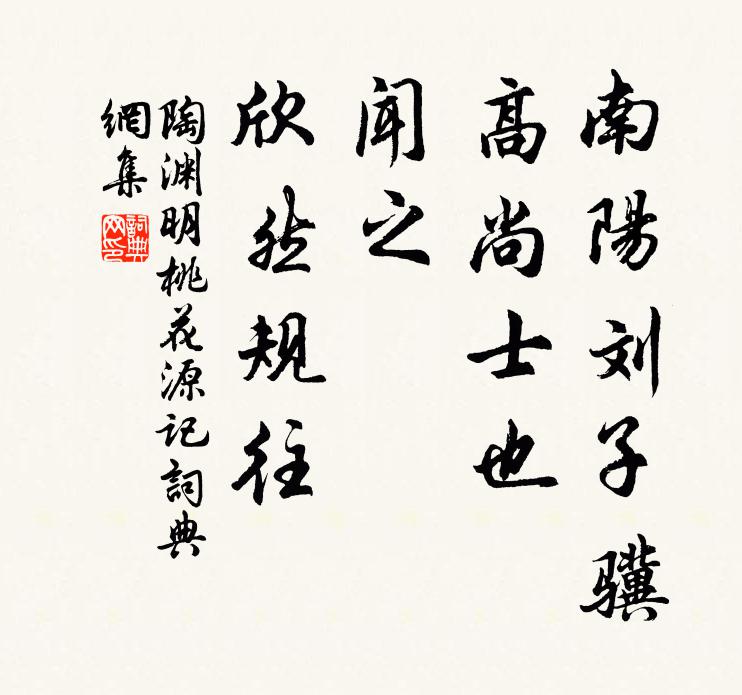 南陽刘子骥
高尚士也
闻之
欣然规往
陶渊明桃花源记詞典
網集
詞典
网印